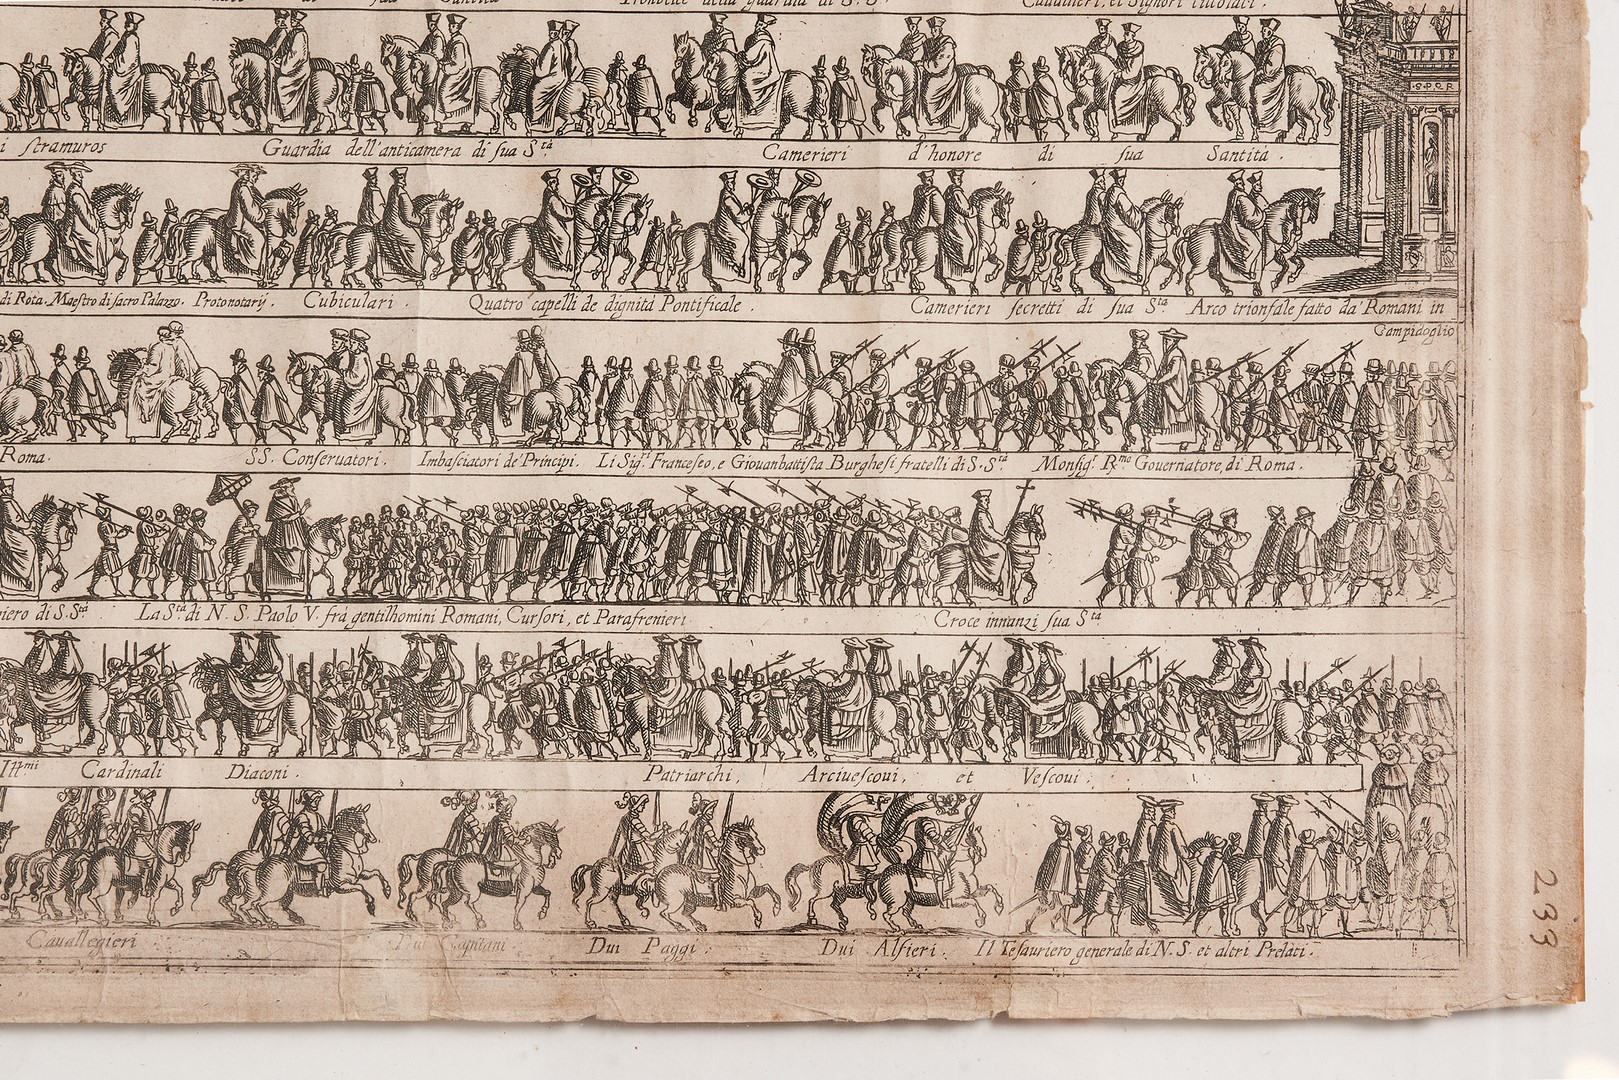 della guardia di S. S.
Caualieri, et Signori titolati.
S P Q R
i stramuros
Guardia dell'anticamera di sua S.tà
Camerieri d'honore di sua Santità.
di Rota. Maestro di sacro Palazzo. Protonotarÿ. Cubiculari. Quatro capelli de dignità Pontificale. Camerieri secretti di sua S.tà Arco trionfale fatto da' Romani in
Campidoglio
Roma. SS. Conseruatori. Imbasciatori de' Principi. Li Sig.ri Francesco, e Giouanbattista Burghesi fratelli di S. S.tà Monsig.r R.mo Gouernatore, di Roma.
iero di S. S.tà La S.tà di N. S. Paolo V. frà gentilhomini Romani, Cursori, et Parafrenieri
Croce innanzi sua S.tà
Ill.mi Cardinali Diaconi.
Patriarchi, Arciuescoui, et Vescoui.
Cauallegieri
Dui Capitani
Dui Paggi.
Dui Alfieri.
Il Tesauriero generale di N. S. et altri Prelati.
233